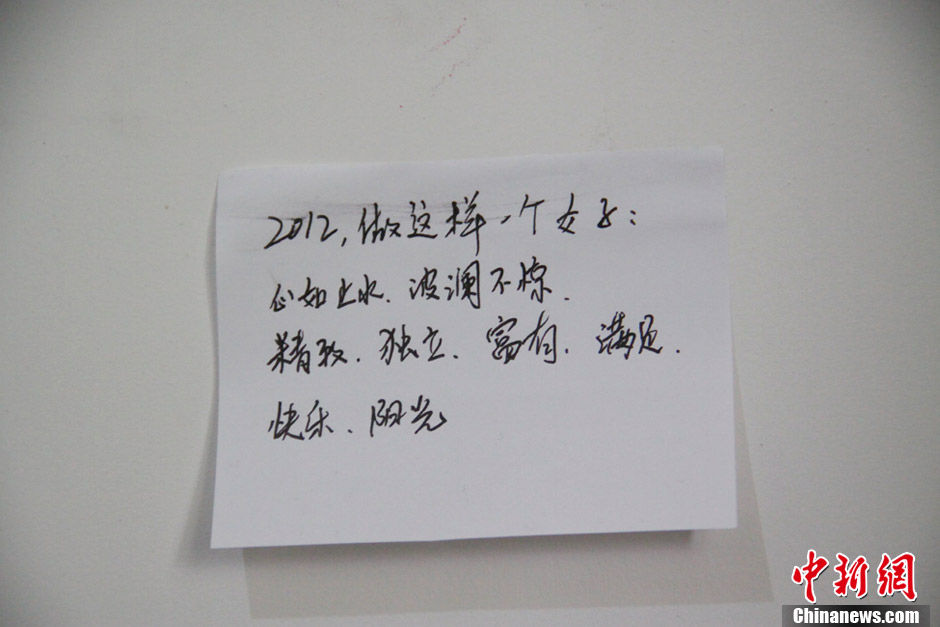 2012,做这样一个女子:
心如止水、波澜不惊、
精致、独立、富有、满足、
快乐、阳光
中新網
Chinanews.com